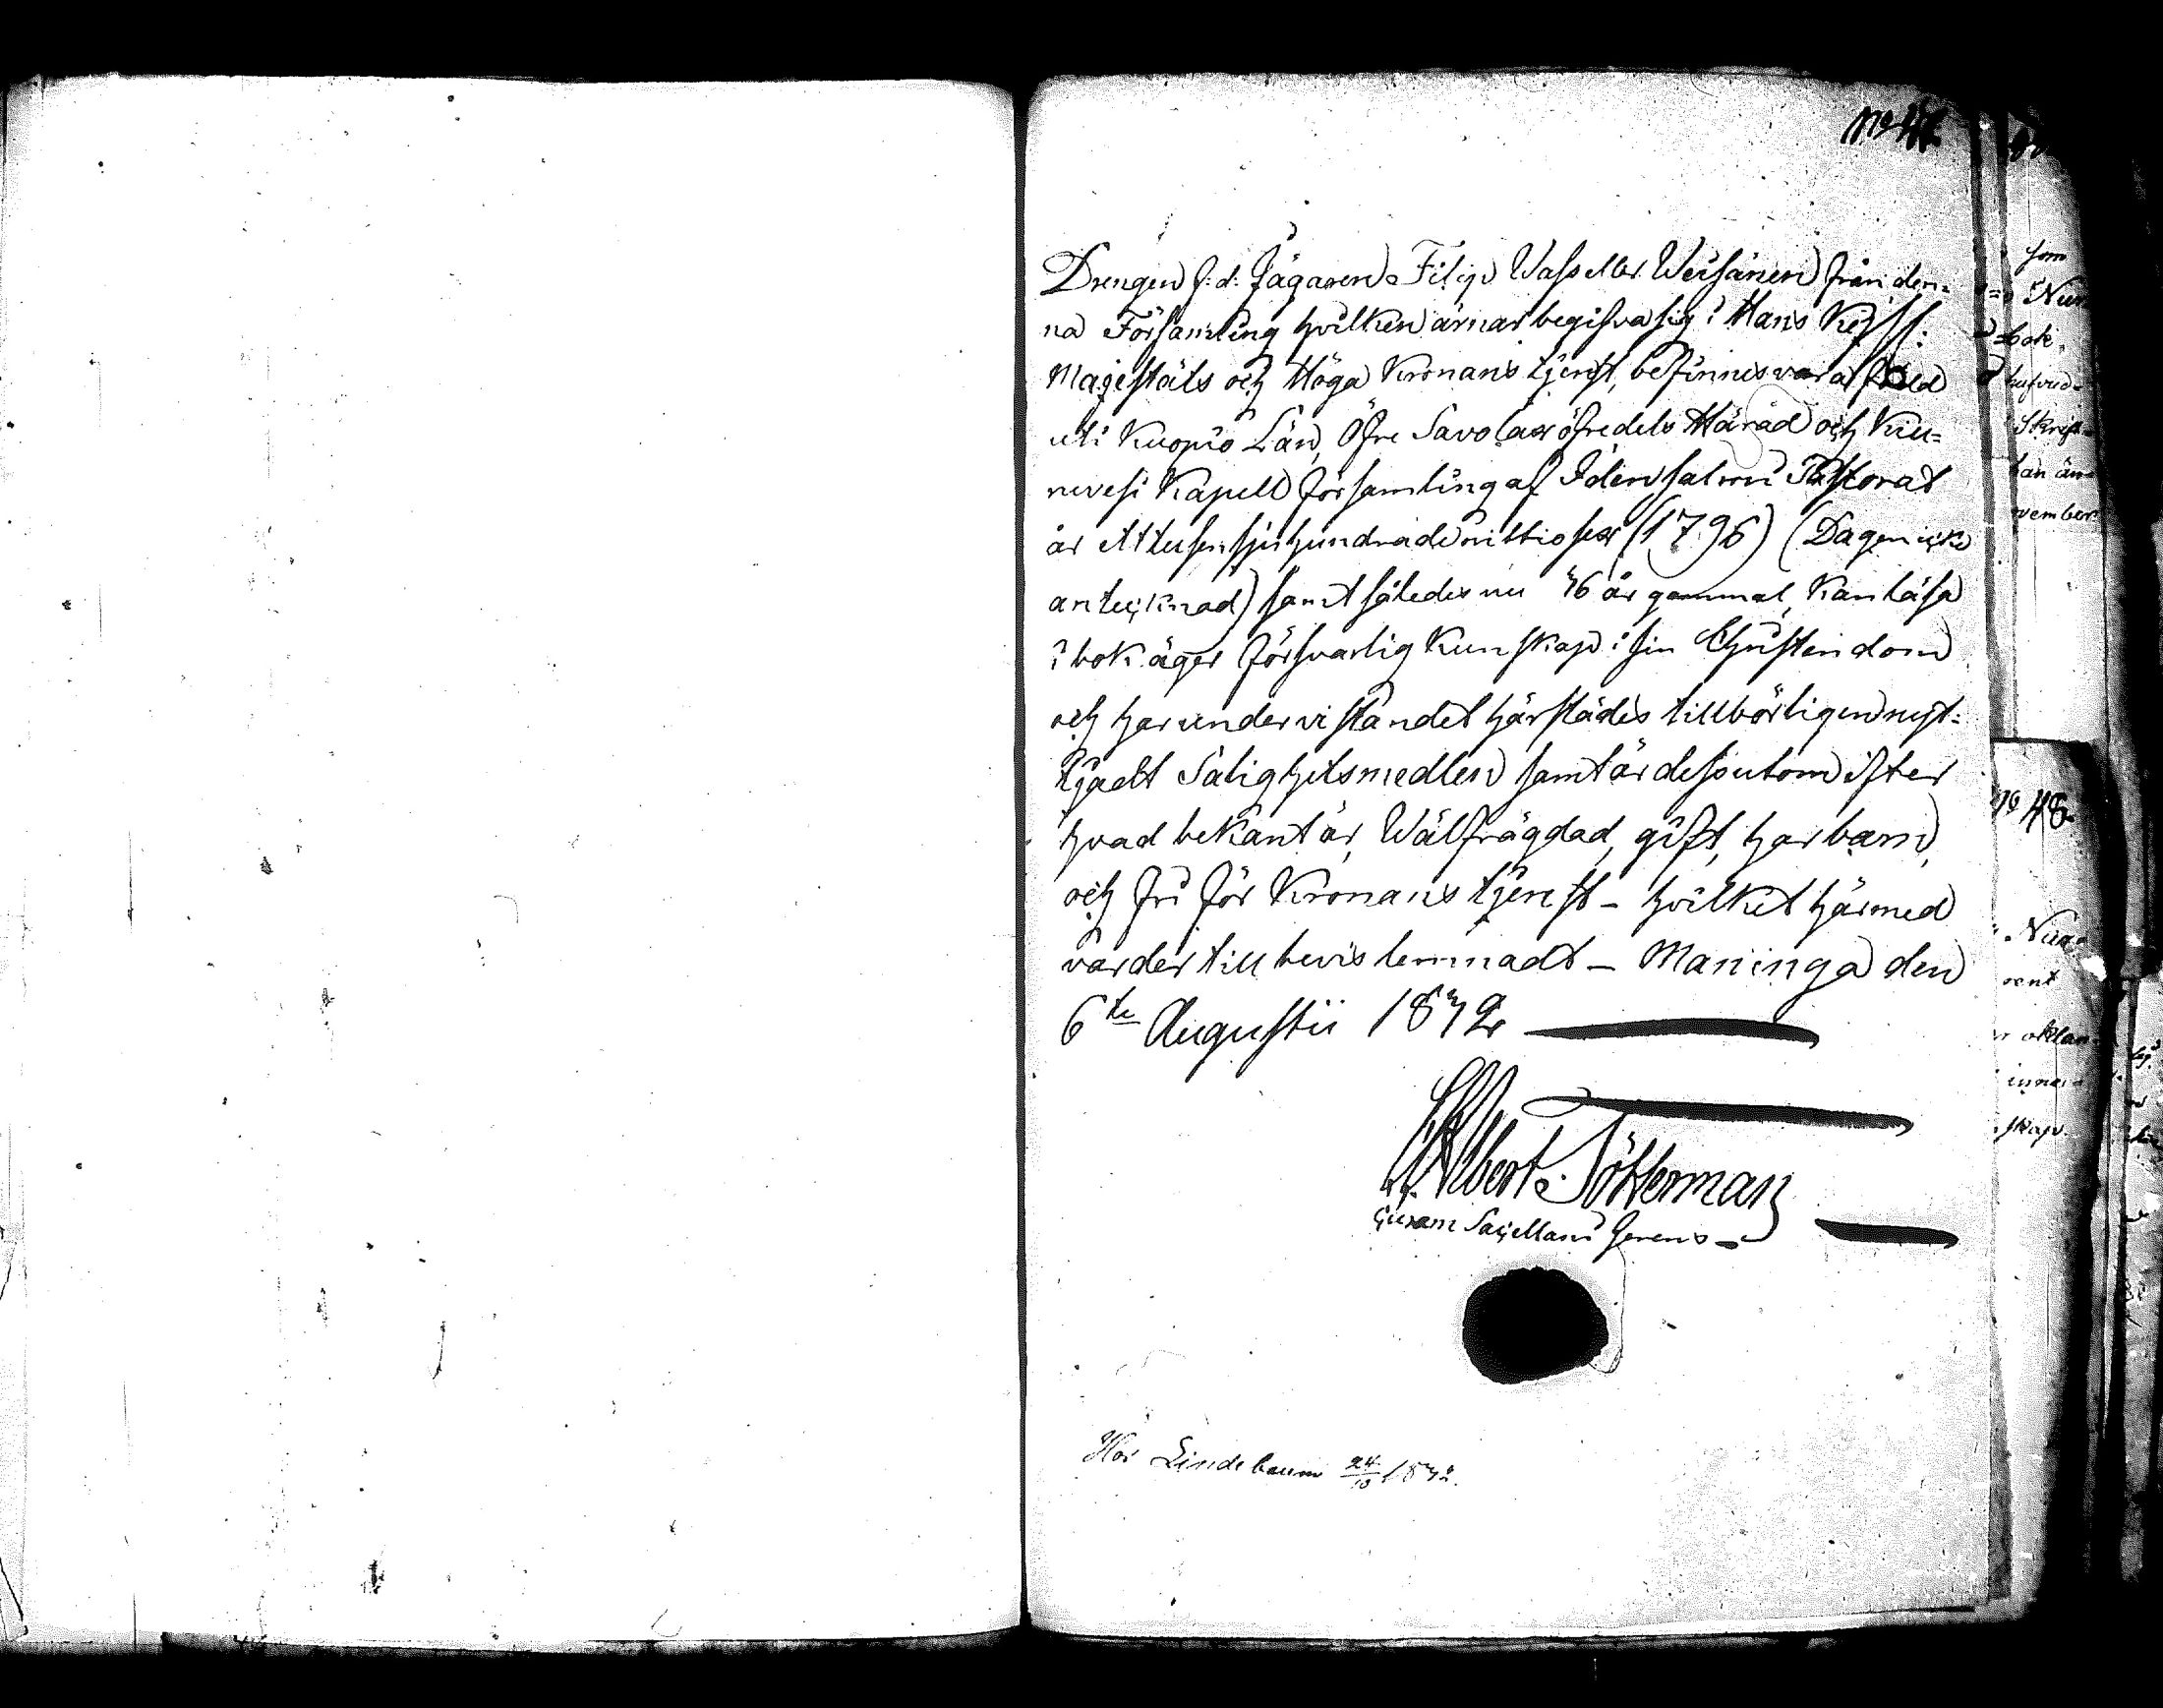 No 47.
Drengen f: d: Jägaren Filip Wass eller Weisänen från den-
na Församling hvilken ärnar begifva sig i Hans Kejss:
Majestäts och Höga Kronans tjenst, befinnes vara född
uti Kuopio Län, Öfre Savolax öfredels Härad och Kiu-
ruvesi Kapell församling af Idensalmi Pastorat
år Ettusensjuhundradenittiosex (1796) (Dagen icke
antecknad) samt således nu 46 år gammal, Kan läsa
i bok äger försvarlig Kunskap i sin Christendom
och har under vistandet härstädes tillbörligen nyt-
tjadt Salighetsmedlen samt är dessutom efter
hvad bekant är, Wälfrägdad, gift, har barn,
och fri för Kronans tjenst - hvilket härmed
varder till bevis lemnadt - Maninga den
6te Augustii 1842
Albert Tötterman
Curam Sacellani Gerens
Hos Lindebaum 24/10 1842.
som
Nur
bok,
hufvud-
Skrift-
han än-
vember
No 48.
Nur-
vent
skap.